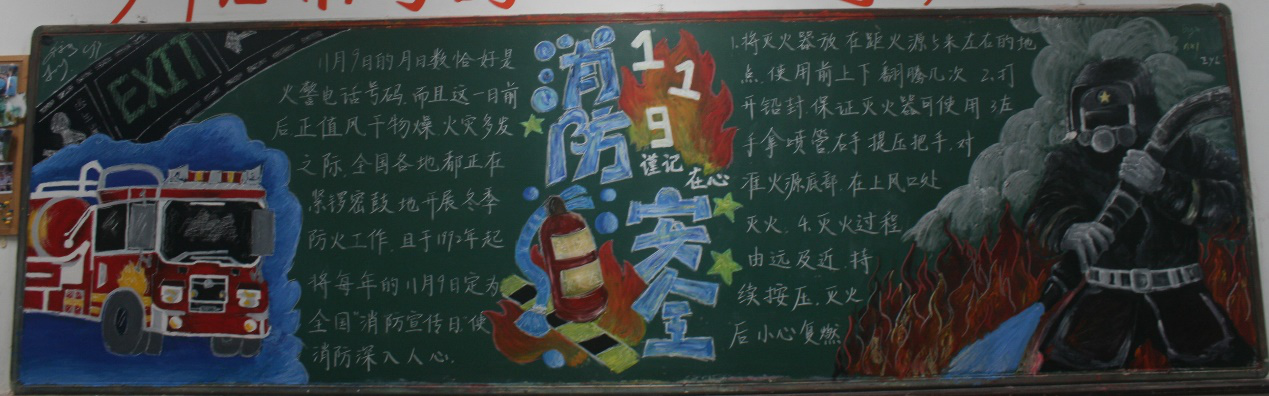 EXIT
11月9日的月日数恰好是
火警电话号码,而且这一日前
后,正值风干物燥,火灾多发
之际,全国各地都正在
紧锣密鼓地开展冬季
防火工作,且于1992年起
将每年的11月9日定为
全国"消防宣传日"使
消防深入人心.
消防
安全
119
谨记
在心
1.将灭火器放在距火源5米左右的地
点,使用前上下翻腾几次 2.打
开铅封,保证灭火器可使用 3.左
手拿喷管右手提压把手,对
准火源底部,在上风口处
灭火. 4.灭火过程
由远及近,持
续按压.灭火
后小心复燃